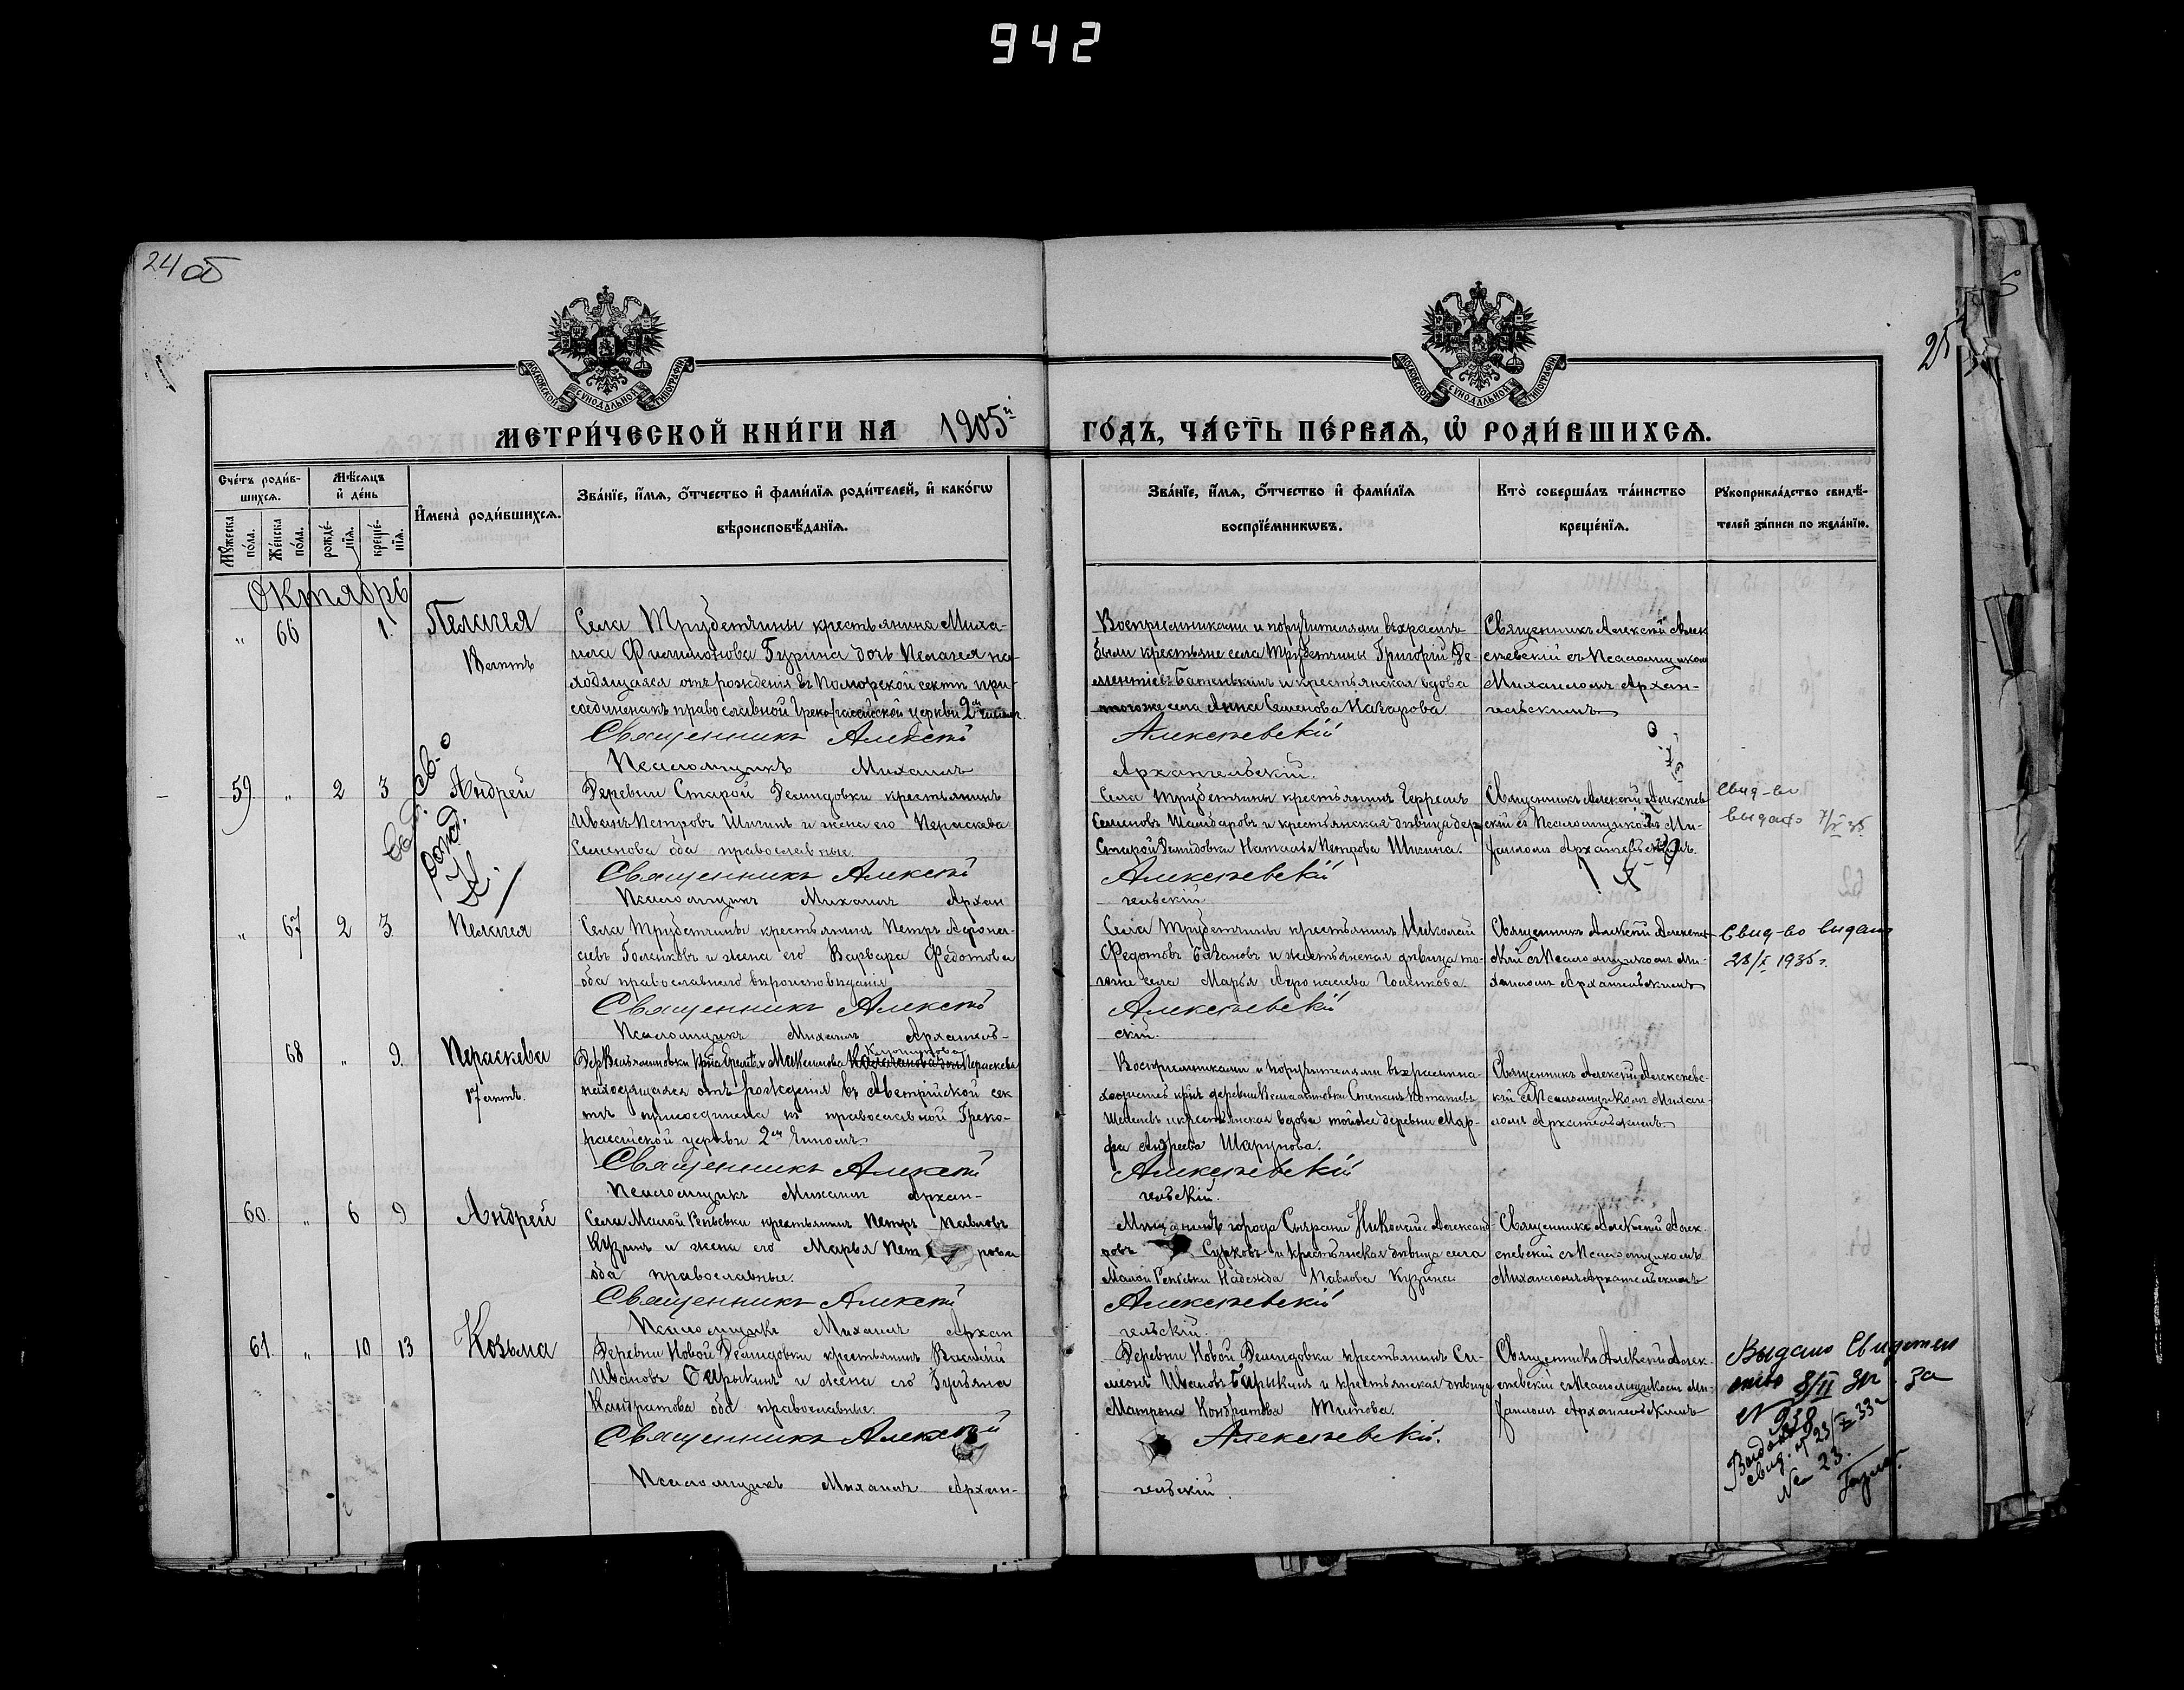 942
24 об
25
МОСКОВСКОЙ СУНОДАЛЬНОЙ ТИПОГРАФІИ
МОСКОВСКОЙ СУНОДАЛЬНОЙ ТИПОГРАФІИ
МЕТРИ́ЧЕСКОЙ КНИ́ГИ НА 1905й ГО́ДЪ, ЧА́СТЬ ПЕ́РВАѦ, Ѡ҆ РОДИ́ВШИХСѦ.
Сче́тъ роди́в-
шихсѧ.
Мѣ́сѧцъ
и҆ де́нь
Мꙋ́жеска
по́ла.
Же́нска
по́ла.
рожде́-
нїѧ.
креще́-
нїѧ.
И҆мена̀ роди́вшихсѧ.
Зва́нїе, и҆́мѧ, ѻ҆́тчество и҆ фами́лїѧ роди́телей, и҆ како́гѡ
вѣроисповѣ́данїѧ.
Зва́нїе, и҆́мѧ, ѻ҆́тчество и҆ фами́лїѧ
воспрїе́мникѡвъ.
Кто̀ соверша́лъ та́инство
креще́нїѧ.
Рꙋкоприкла́дство свидѣ́-
телей за́писи по жела́нїю.
Октябрь
„ 66 1. Пелагея
лѣтъ
Села Трубетчины крестьянина Миха-
ила Филимонова Гурина дочь Пелагея на-
ходящаяся отъ рожденія въ Поморской сектѣ при-
соединена къ православной Грекороссійской церкви 2мъ чиномъ.
Священникъ Алексѣй
Псаломщикъ Михаилъ
Воспріемниками и поручителями въ храмѣ
были крестьяне села Трубетчины Григорій Де-
ментіевъ Батенькинъ и крестьянская вдова
тогоже села Анна Семенова Назарова
Алексѣевскій
Архангельскій.
Священникъ Алексѣй Алек
сѣевскій съ Псаломщикомъ
Михаиломъ Архан-
гельскимъ
59. „ 2 3 Андрей
Деревни Старой Демидовки крестьянинъ
Иванъ Петровъ Шигинъ и жена его Пераскева
Семенова оба православные.
Священникъ Алексѣй
Псаломщикъ Михаилъ Архан
Села Трубетчины крестьянинъ
Семеновъ и крестьянская дѣвица дер
Старой Демидовки Наталья Петрова Шигина.
Алексѣевскій
гельскій
Священникъ Алексѣй Алексѣев
скій съ Псаломщикомъ Ми-
хаиломъ Архангельскимъ.
Свид-во
выдано
„ 67 2 3. Пелагея
Села Трубетчины крестьянинъ Петръ Афона-
сіевъ Голенковъ и жена его Варвара Федотова
оба православнаго вѣроисповѣданія
Священникъ Алексѣй
Псаломщикъ Михаилъ Архангель-
Села Трубетчины крестьянинъ Николай
Федотовъ и крестьянская дѣвица то-
гоже села Марья Афонасіева Голенкова.
Алексѣевскій
скій.
Священникъ Алексѣй Алексѣев
скій съ Псаломщикомъ Ми-
хаиломъ Архангельскимъ
Свид-во выдано
23/X 1935 г.
68 „ 9. Пераскева
17 лѣтъ.
Максимова Пераскева
находящаяся отъ рожденія въ Австрійской сек
тѣ присоединена къ православной Греко-
россійской церкви 2мъ чиномъ
Священникъ Алексѣй
Псаломщикъ Михаилъ Архан-
Воспріемниками и поручителями въ храмѣ на-
деревни Степанъ
и крестьянская вдова тойже деревни Мар-
фа Андреева Шарунова.
Алексѣевскій
гельскій.
Священникъ Алексѣй Алексѣевс-
кій съ Псаломщикомъ Михаи-
ломъ Архангельскимъ
60. „ 6 9 Андрей
Села Малой Репьевки крестьянинъ Петръ Павловъ
Кузинъ и жена его Марья Пет рова
оба православные.
Священникъ Алексѣй
Псаломщикъ Михаилъ Архан
Мѣщанинъ города Сызрани Николай Александ-
ровъ Сурковъ и крестьянская дѣвица села
Малой Репьевки Надежда Павлова Кузина
Алексѣевскій
гельскій.
Священникъ Алексѣй Алек-
сѣевскій съ Псаломщикомъ
Михаиломъ Архангельскимъ
61. „ 10 13 Козьма
Деревни Новой Демидовки крестьянинъ Василій
Ивановъ Барыкинъ и жена его Гульяна
Кандратова оба православные.
Священникъ Алексѣй
Псаломщикъ Михаилъ Архан-
Деревни Новой Демидовки крестьянинъ Си-
меонъ Ивановъ Барыкинъ и крестьянская дѣвица
Матрона Кондратова Титова.
Алексѣевскій.
гельскій.
Священникъ Алексѣй Алек-
сѣевскій съ Псаломщикомъ Ми-
хаиломъ Архангельскимъ
Выдано Свидетел
8/II за
№ 938
Выдано
свид.
№ 23.